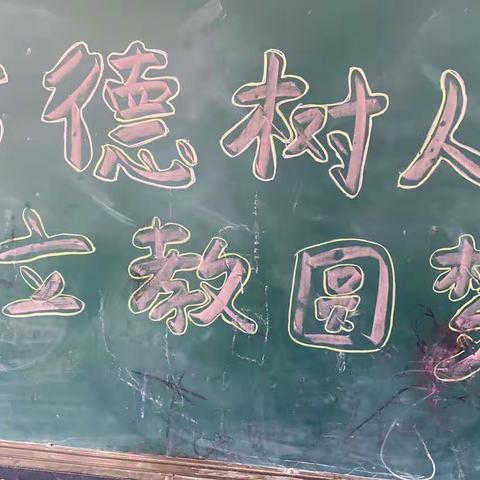 德树人
立教圆梦